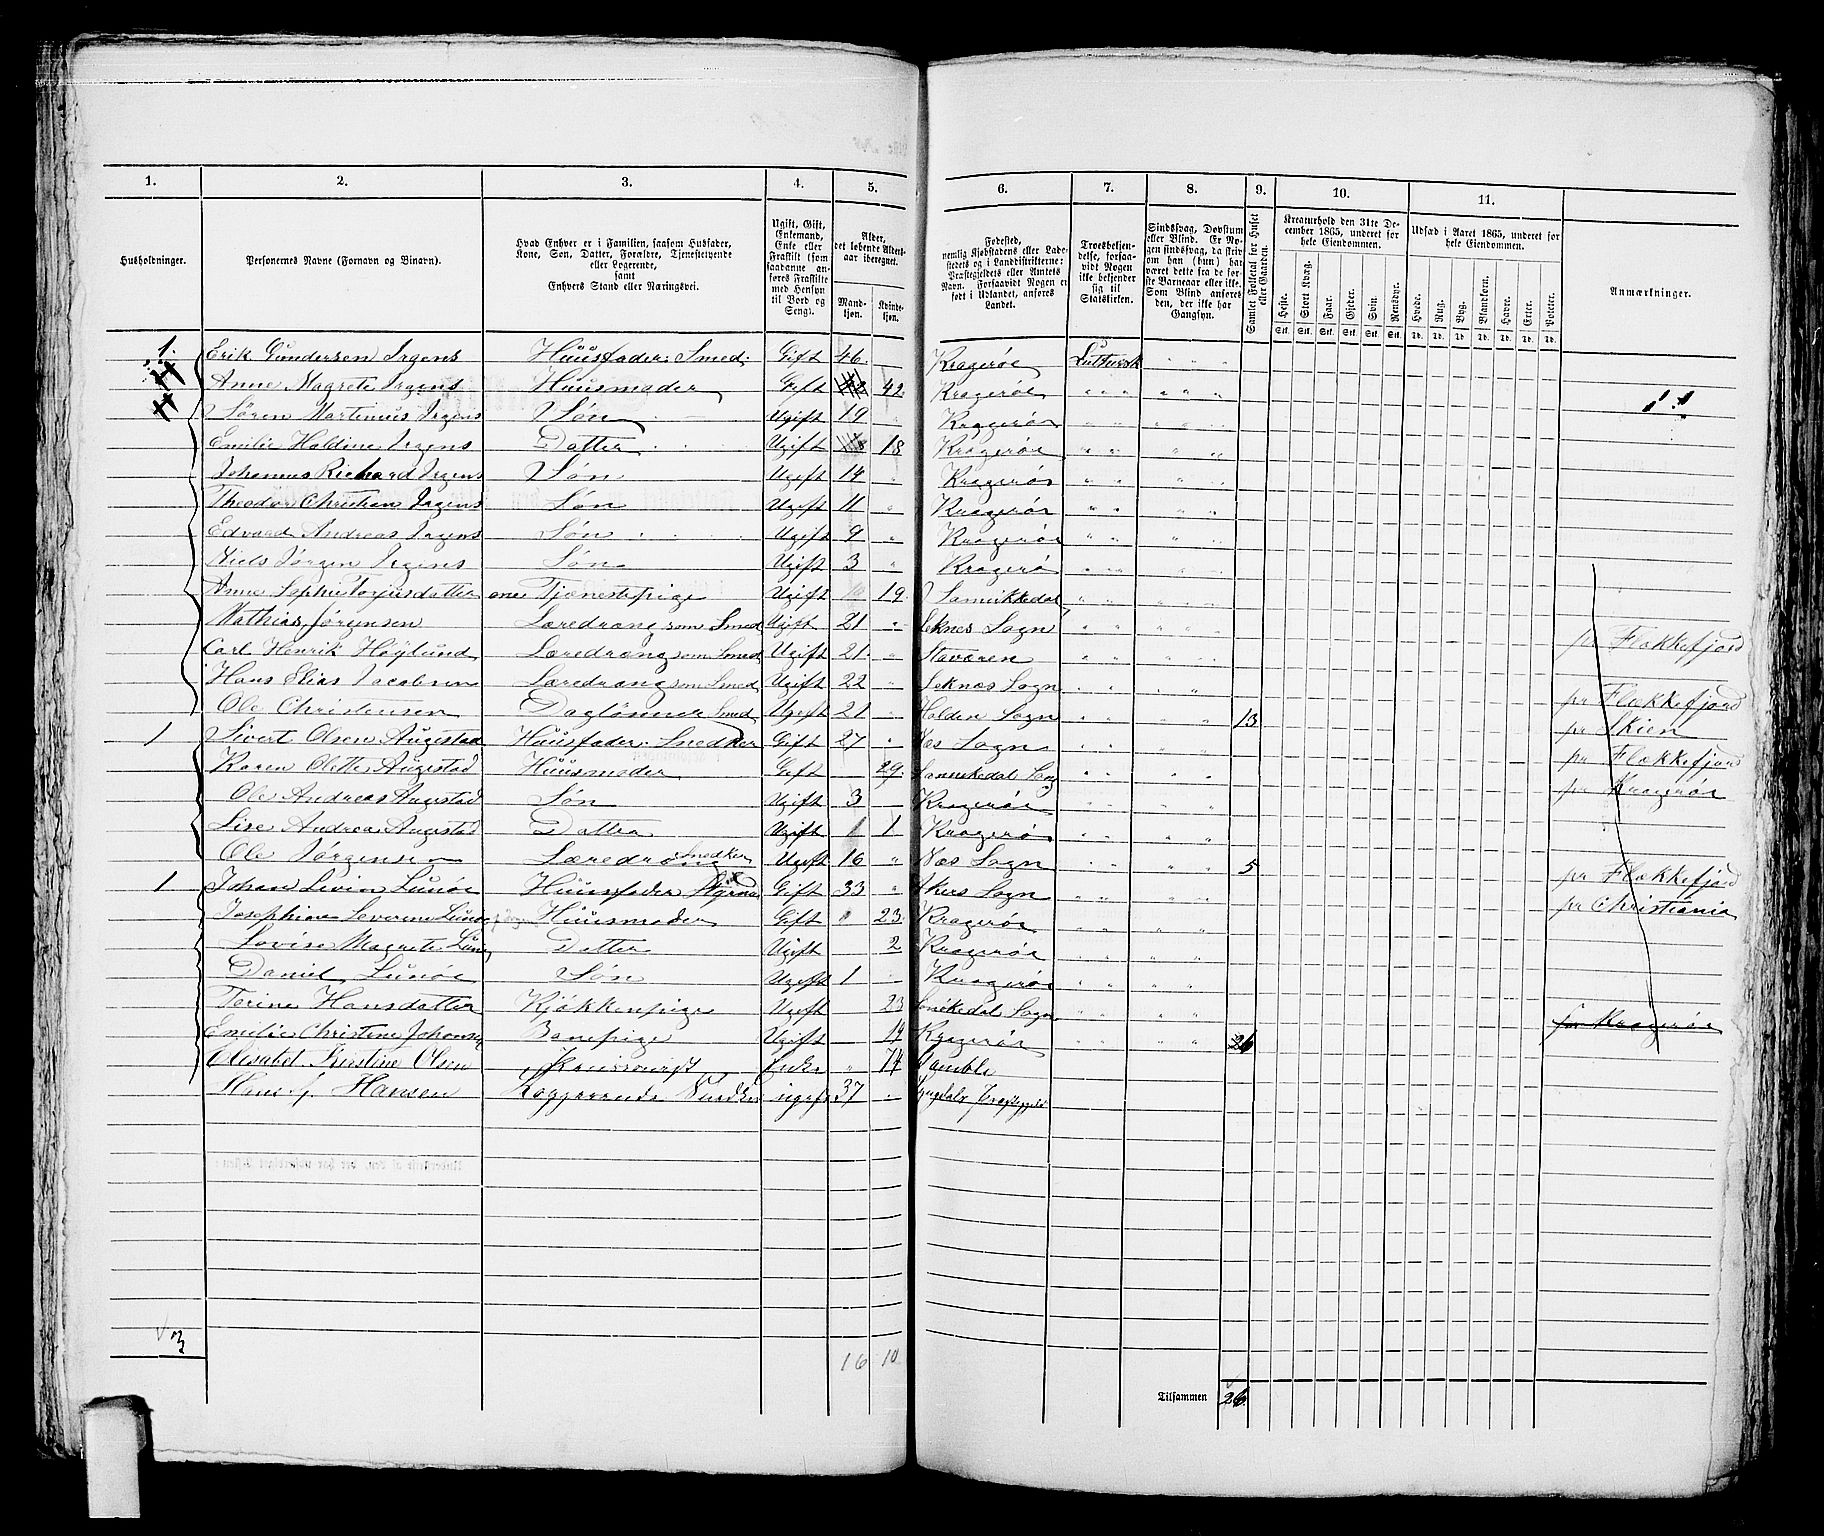 1. 2. 3. 4. 5. 6. 7. 8. 9. 10. 11.
Husholdninger.
Personernes Navne (Fornavn og Binavn).
Hvad Enhver er i Familien, saasom Husfader, Kone, Søn, Datter, Forældre, Tjenestetyende eller Logerende, samt Enhvers Stand eller Næringsvei.
Ugift, Gift, Enkemand, Enke eller Fraskilt (som saadanne anføres Fraskilte med Hensyn til Bord og Seng).
Alder, det løbende Alders-aar iberegnet.
Mand-kjøn. Kvinde-kjøn.
Fødested, nemlig Kjøbstadens eller Ladestedets og i Landdistrikterne: Præstegjeldets eller Amtets Navn. Forsaavidt Nogen er født i Udlandet, anføres Landet.
Troesbekjendelse, forsaavidt Nogen ikke bekjender sig til Statskirken.
Sindssvag, Døvstum eller Blind. Er Nogen sindssvag, da hvorom han (hun) har været dette fra de første Barneaar eller ikke. Som Blind anføres den, der ikke har Gangsyn.
Samlet Folketal for Huset eller Gaarden.
Kreaturhold den 31te December 1865, underet for hele Eiendommen.
Heste. Stort Kvæg. Faar. Geder. Svin. Rensdyr.
Udsæd i Aaret 1865, underet for hele Eiendommen.
Hvede. Rug. Byg. Blandkorn. Havre. Erter. Poteter.
Anmærkninger.
Stk. Stk. Stk. Stk. Stk. Stk. Td. Td. Td. Td. Td. Td. Td.
1. Erik Gundersen Irgens Huusfader: Smed. Gift 46. Kragerøe Luthersk
Anne Magrete Irgens Huusmoder Gift 42 Kragerøe
Søren Martinius Irgens Søn Ugift 19 Kragerøe
Emilie Haldine Irgens Datter Ugift 18 Kragerøe
Johannes Richard Irgens Søn Ugift 14 Kragerøe
Theodor Christian Irgens Søn Ugift 11 Kragerøe
Edvard Andreas Irgens Søn Ugift 9 Kragerøe
Niels Jørgen Irgens Søn Ugift 3 Kragerø
Anne Sophie Torjusdatter Tjenestepige Ugift 19. Sannikkedal
Mathias Jørgensen Læredreng som Smed Ugift 21 Seknes Sogn pr Flækkefjord
Carl Henrik Høylund Læredreng som Smed Ugift 21. Staværen
Hans Elias Jacobsen Læredreng som Smed Ugift 22 Seknæs Sogn pr Flækkefjord
Ole Christensen Daglønner Smed Ugift 21 Holden Sogn 13 pr Skien
1 Sivert Olsen Augestad Huusfader: Snedker Gift 27 Næs Sogn pr Flækkefjord
Karen Olette Augestad Huusmoder Gift 29. Sannikedal Sogn pr Kragerøe
Ole Andreas Augestad Søn Ugift 3 Kragerøe
Lise Andrea Augestad Datter Ugift 1 Kragerøe
Ole Jørgensen Læredreng Snedker Ugift 16 Næs Sogn 5 pr Flækkefjord
1 Johan Levin Lunøe Huusfader Gift 33 Akers Sogn pr Christiania
Josephine Severine Lunøe Huusmoder Gift 23 Kragerøe
Lovise Magrete Datter Ugift 2 Kragerøe
Daniel Lunøe Søn Ugift 1 Kragerøe
Terine Hansdatter Kjøkkenpige Ugift 23 Sanikedal Sogn
Emelie Christine Johansen Barnepige Ugift 14 Kragerøe 26 pr Kragerøe
Kirstine Olsen Enke 74 Bamble
Hans J. Hansen Ugift 37
3
16 10
Tilsammen 26